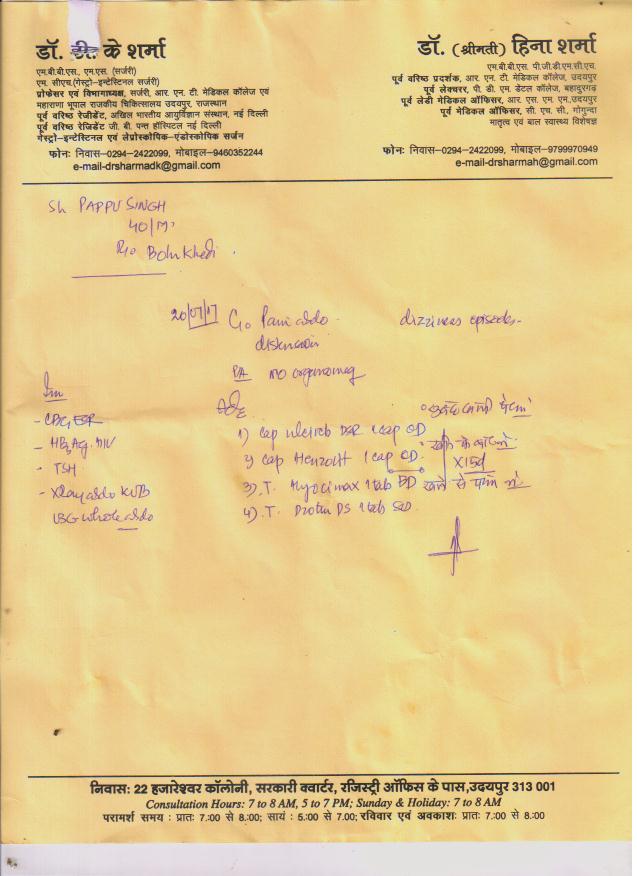 डॉ. डी. के शर्मा
एम.बी.बी.एस., एम.एस. (सर्जरी)
एम. सीएच.(गेस्ट्रो-इन्टेस्टिनल सर्जरी)
प्रोफेसर एवं विभागाध्यक्ष, सर्जरी, आर. एन. टी. मेडिकल कॉलेज एवं
महाराणा भूपाल राजकीय चिकित्सालय उदयपुर, राजस्थान
पूर्व वरिष्ठ रेजीडेंट, अखिल भारतीय आयुर्विज्ञान संस्थान, नई दिल्ली
पूर्व वरिष्ठ रेजिडेंट जी. बी. पन्त हॉस्पिटल नई दिल्ली
गेस्ट्रो-इन्टेस्टिनल एवं लेप्रोस्कोपिक-एंडोस्कोपिक सर्जन
फोनः निवास-0294-2422099, मोबाइल-9460352244
e-mail-drsharmadk@gmail.com
डॉ. (श्रीमती) हिना शर्मा
एम.बी.बी.एस. पी.जी.डी.एम.सी.एच.
पूर्व वरिष्ठ प्रदर्शक, आर. एन. टी. मेडिकल कॉलेज, उदयपुर
पूर्व लेक्चरर, पी. डी. एम. डेंटल कॉलेज, बहादुरगढ़
पूर्व लेडी मेडिकल ऑफिसर, आर. एस. एम. एम.,उदयपुर
पूर्व मेडिकल ऑफिसर, सी. एच. सी., गोगुन्दा
मातृत्व एवं बाल स्वास्थ्य विशेषज्ञ
फोनः निवास-0294-2422099, मोबाइल-9799970949
e-mail-drsharmah@gmail.com
Sh PAPPU SINGH
40/M
R/o Bohrkhedi
20/07/17 C/o Pain abdo dizziness episodes
distension
PA NO organomeg
Inv
Adv
- CBC, ESR
- HBsAg, HIV
- TSH
- Xray abdo KUB
USG whole abdo
1) cap DSR 1 cap OD
2) cap 1 cap OD. X15d
3) T. 1 tab BD खाने से पहले
4) T. DS 1 tab
निवासः 22 हजारेश्वर कॉलोनी, सरकारी क्वार्टर, रजिस्ट्री ऑफिस के पास,उदयपुर 313 001
Consultation Hours: 7 to 8 AM, 5 to 7 PM; Sunday & Holiday: 7 to 8 AM
परामर्श समय : प्रातः 7.00 से 8.00; सायं : 5.00 से 7.00; रविवार एवं अवकाशः प्रातः 7.00 से 8.00